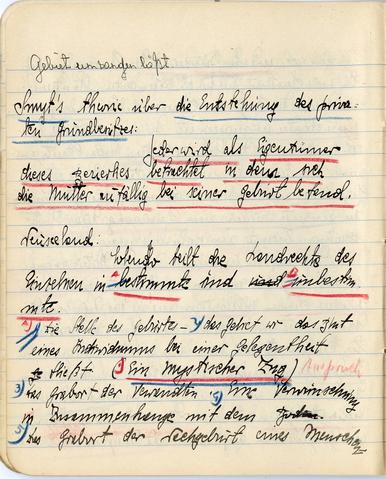 Gebiet umrangen läßt.
Smyt's theorie über die Entstehung des priva-
ten Grundbesitzes:
Jeder wird als Eigentümer
dieses Bezierkes betrachtet in dem sich
die Mutter zufällig bei seiner Geburt befand.
Neuseeland:
teilt die Landrechte des
Einzelnen in A bestimmte und B unbestim
mte.
A) 1) Die Stelle des Geburtes - 2) das gebiet wo das Blut
eines Individuums bei einer Gelegenheit
fließt (Ein mystischer Zug) Anspruch
3) das grabort der Verwandten 4) Eine Verwünschung
in Zusammenhange mit dem
5) Das Grabort der Nachgeburt eines Menschen